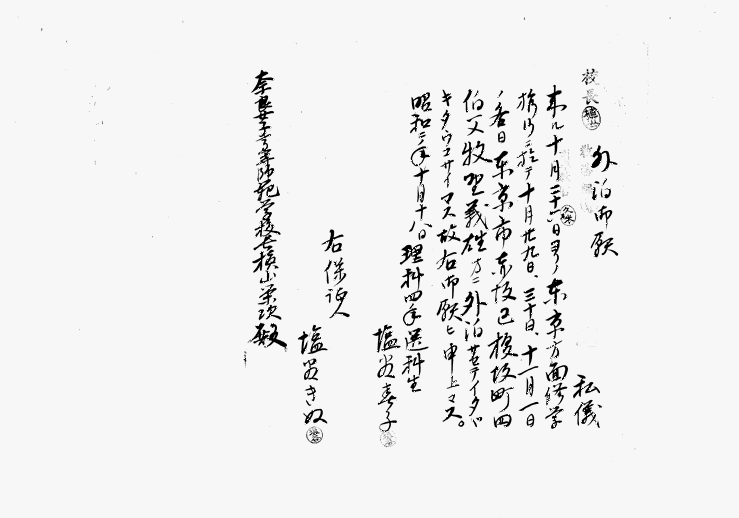 校長
外泊御願
私儀
来ル十月二十六日ヨリノ東京方面修学
旅行ニ於テ十月廿九日、三十日、十一月一日
ノ各日東京市赤坂区榎坂町四
伯父牧野義雄方ニ外泊サセテイタダ
キタウゴザイマス故右御願ヒ申上マス。
昭和二年十月十八日 理科四年選科生
塩谷喜子
右保証人
塩谷きぬ
奈良女子高等師範学校長横山栄次殿